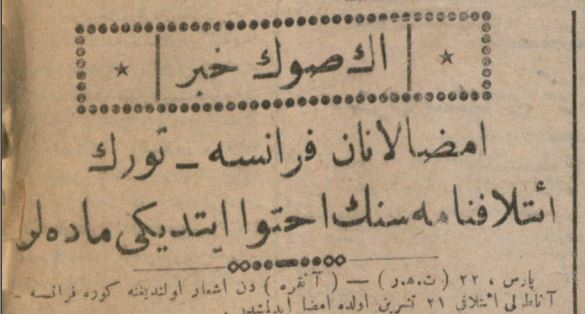 اك صوك خبر
امضالانان فرانسه ـ تورك
ائتلافنامه‌سنك احتوا ايتديكى ماده‌لر
پارس ، ٢٢ ( ت.ه.ر ) — ( آنقره ) دن اشعار اولنديغنه كوره فرانسه ـ
آناطولى ائتلافى ٢١ تشرين اولده امضا ايدلمشدر .